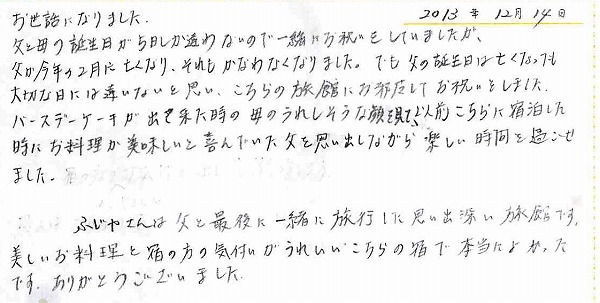 2013年 12月 14日
お世話になりました。
父と母の誕生日が5日しか違わないので一緒にお祝いをしていましたが、
父が今年の2月に亡くなり、それもかなわなくなりました。でも父の誕生日は亡くなっても
大切な日には違いないと思い、こちらの旅館にお邪魔してお祝いをしました。
バースデーケーキが出て来た時の母のうれしそうな顔 前こちらに宿泊した
時にお料理が美味しいと喜んでいた父を思い出しながら楽しい時間を過ごせ
ました。
ふじやさんは父と最後に一緒に旅行した思い出深い旅館です。
美しいお料理と宿の方の気付いがうれしいこちらの宿で本当によかった
です。ありがとうございました。